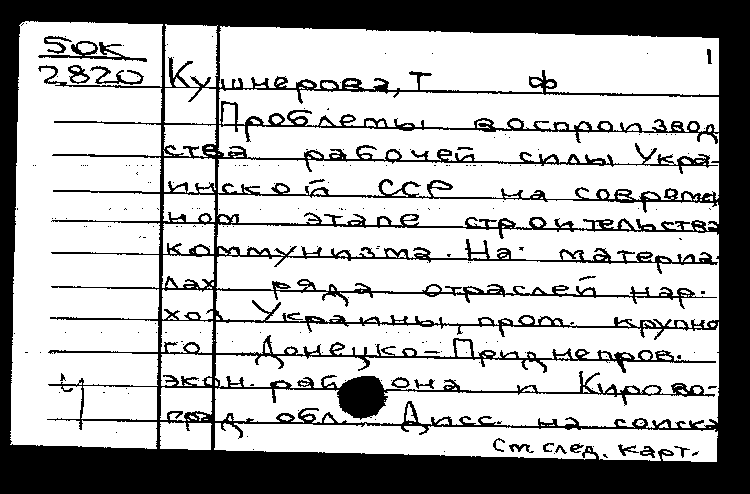 50к
2820
1
Кушнерова, Т ф
Проблемы воспроизвод
ства рабочей силы Укра-
инской ССР на современ
ном этапе строительства
коммунизма. На материа-
лах ряда отраслей нар.
хоз. Украины, прот. крупно
го Донецко-Приднепров.
экон. района и Кирово-
град. обл. Дисс. на соиска
См. след. карт.